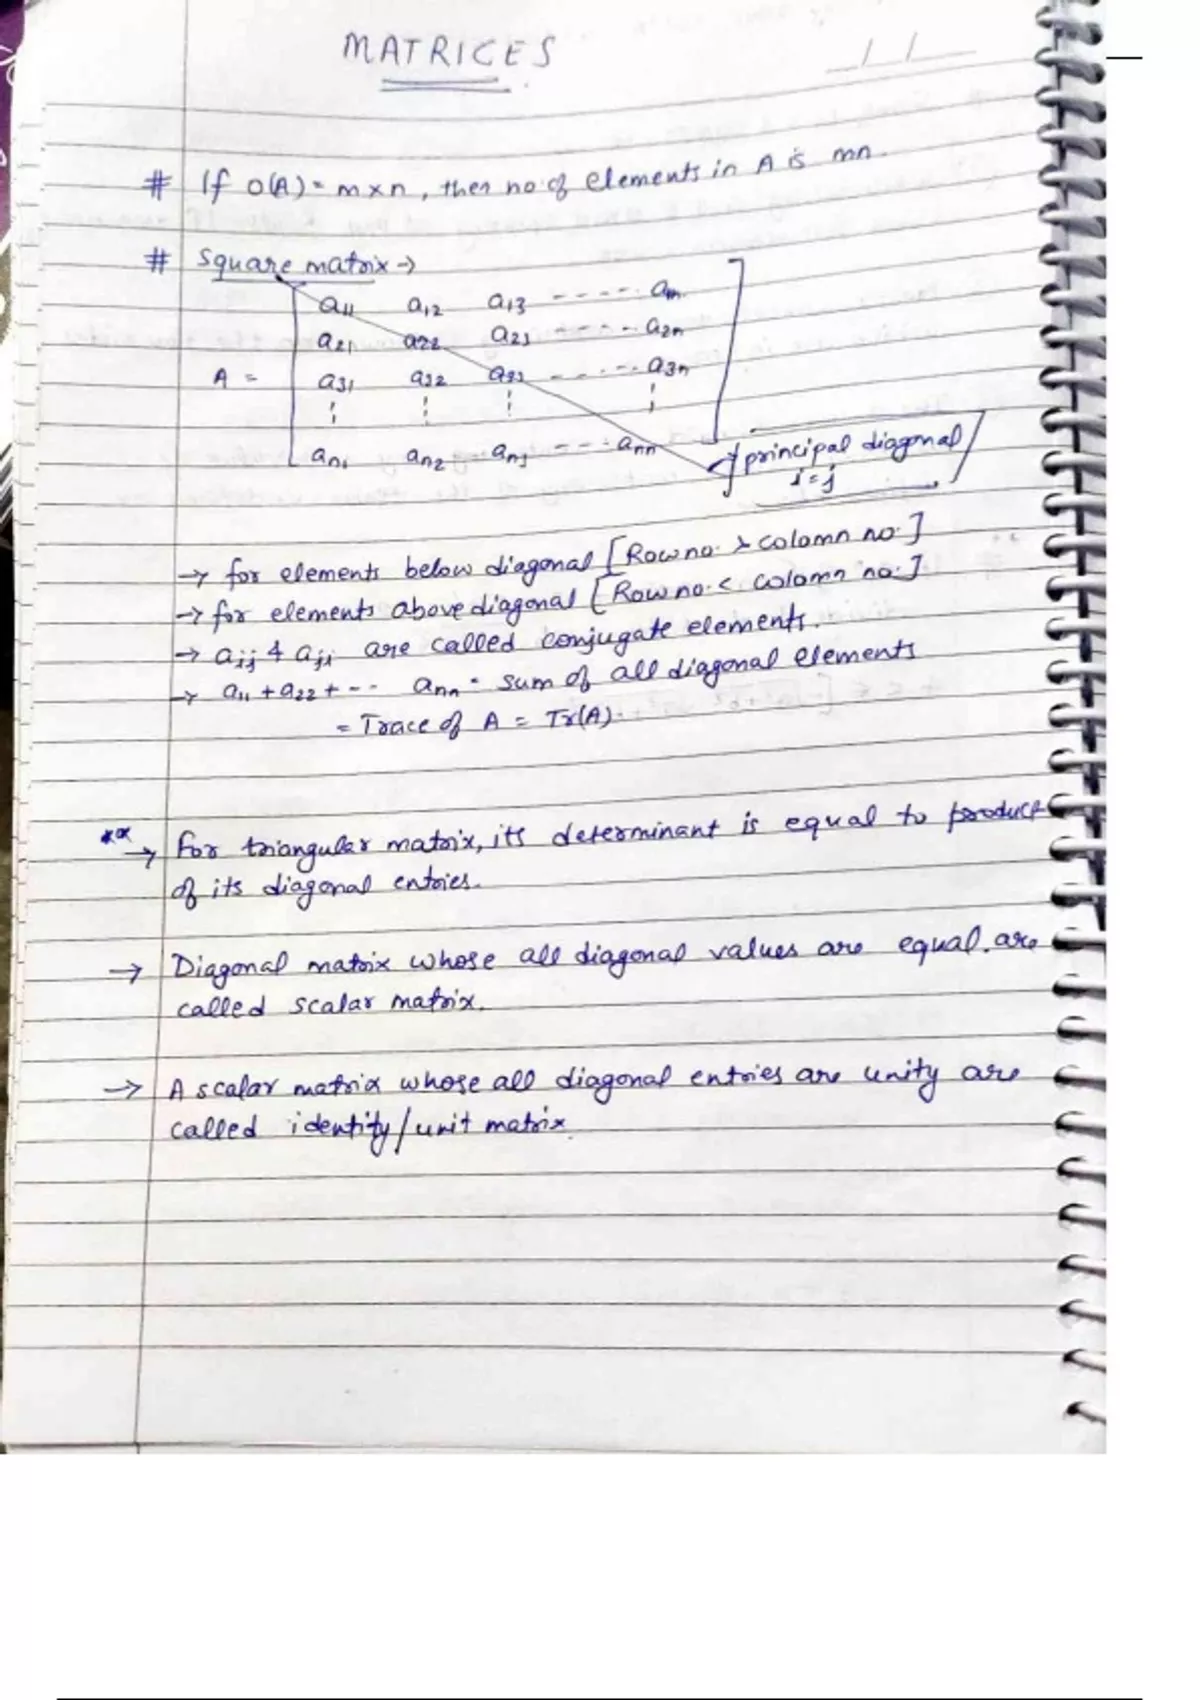 MATRICES
_/_/_
# If O(A) = m×n, then no. of elements in A is mn.
# Square matrix →
a11 a12 a13 ----- a1n
a21 a22 a23 ----- a2n
A = a31 a32 a33 ----- a3n
an1 an2 an3 ----- ann
principal diagonal
i=j
→ for elements below diagonal [Row no. > colomn no.]
→ for elements above diagonal [Row no. < colomn no.]
→ aij & aji are called conjugate elements.
→ a11 + a22 + -- ann = sum of all diagonal elements
= Trace of A = Tr(A).
** → For triangular matrix, its determinant is equal to product
of its diagonal entries.
→ Diagonal matrix whose all diagonal values are equal. are
called scalar matrix.
→ A scalar matrix whose all diagonal entries are unity are
called identity/unit matrix.